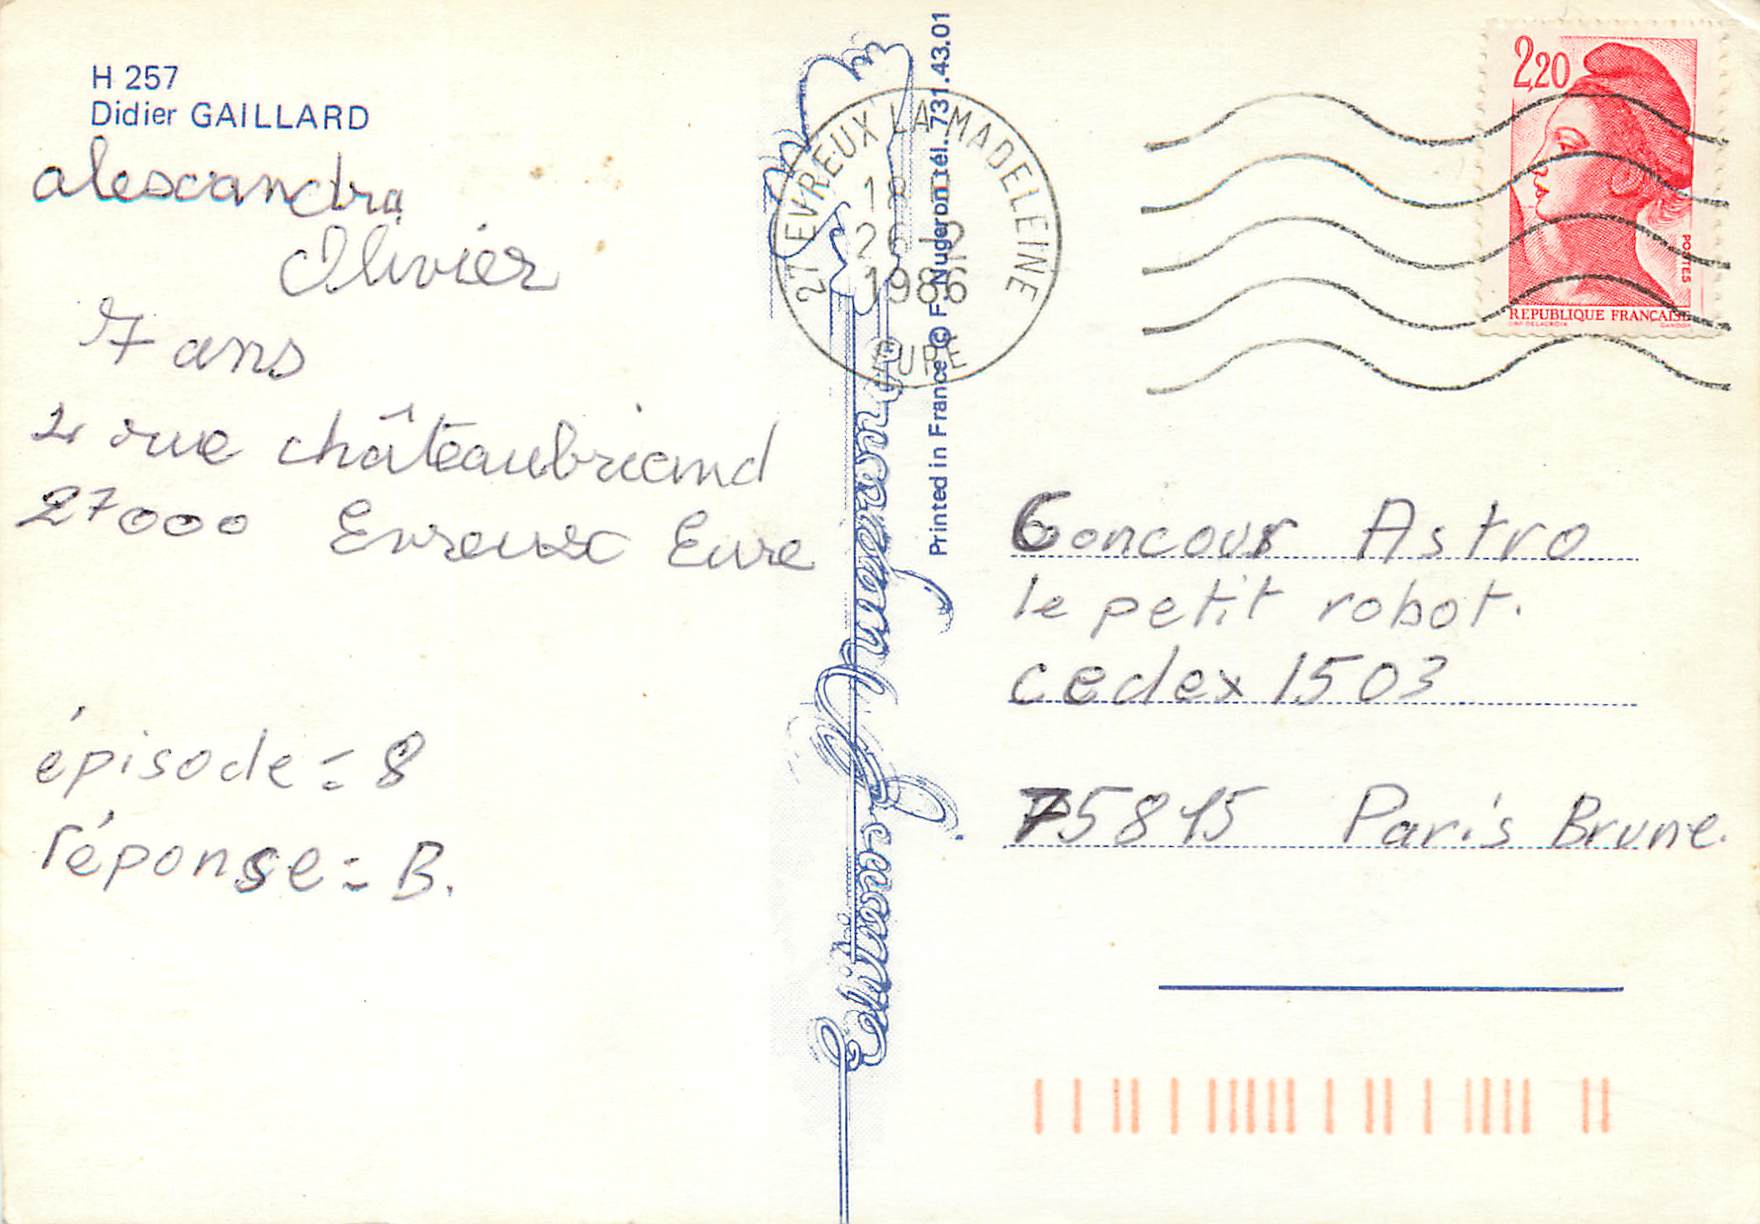 H 257
Didier GAILLARD
alexandra
Olivier
7 ans
2 rue châteaubriand
27000 Evreux Eure
épisode = 8
réponse = B.
Editions F. Nugeron
Printed in France © F. Nugeron tél. 731.43.01
27 EVREUX LA MADELEINE
18
26-2
1986
EURE
2,20
POSTES
REPUBLIQUE FRANÇAISE
Concour Astro
le petit robot.
cedex 1503
75815 Paris Brune.